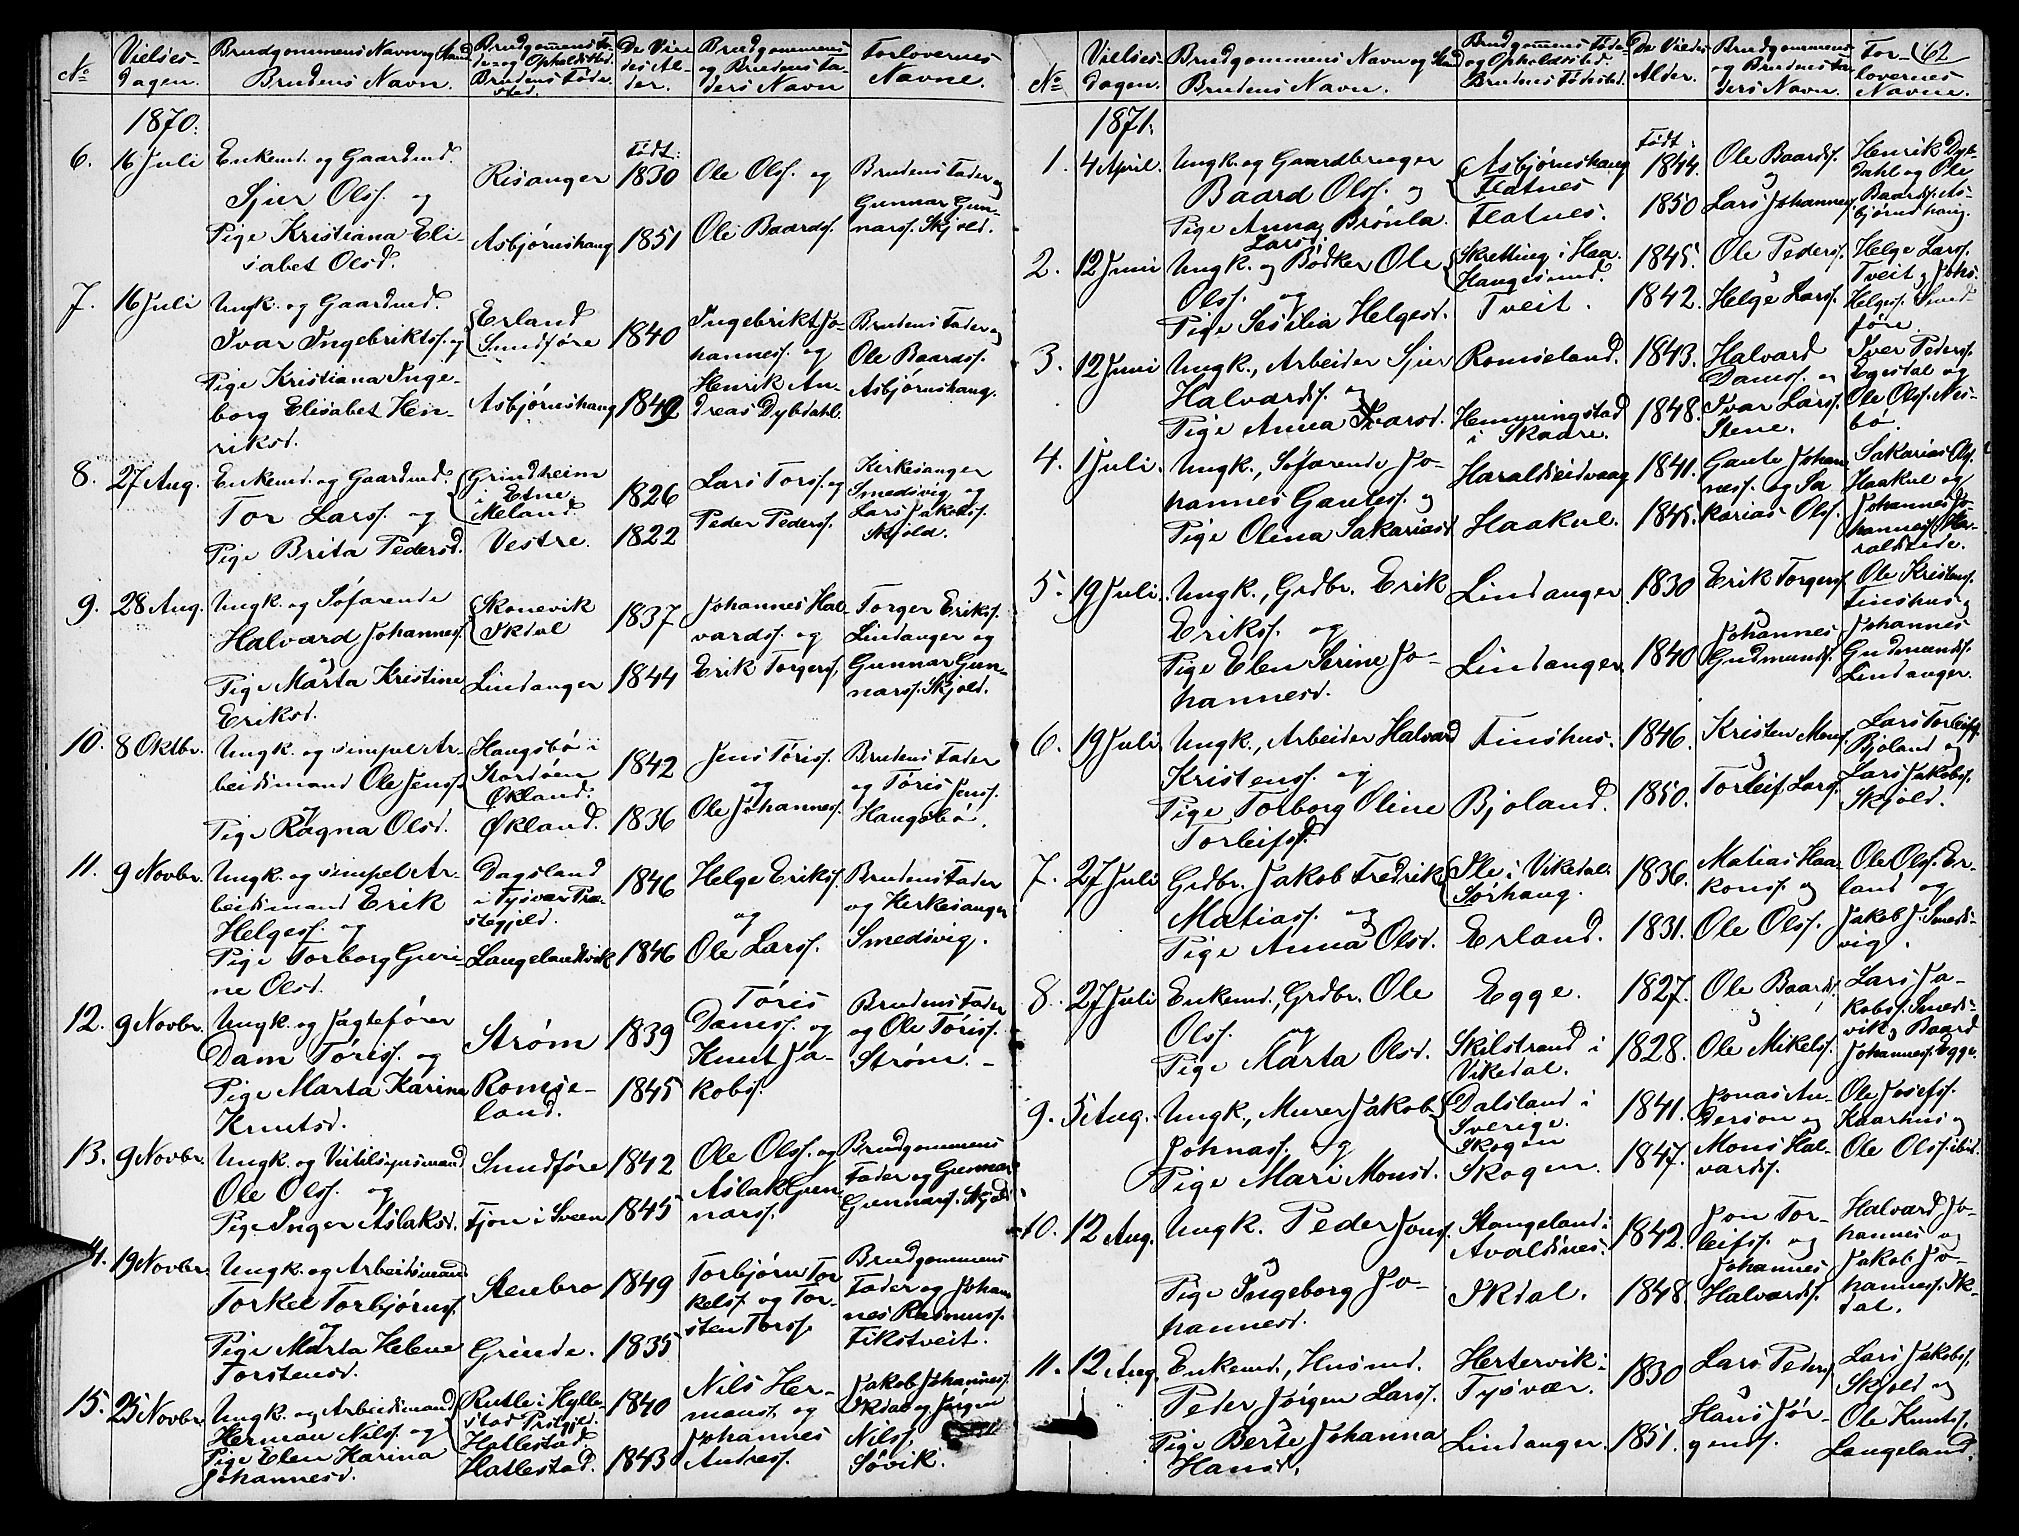 No
Vielses-
dagen.
Brudgommens Navn og Stand
Brudens Navn.
Brudgommens Fø-
de- og Opholdssted.
Brudens Føde-
sted.
De Vie-
des Al-
der.
Brudgommens
og Brudens Fa-
ders Navn
Forlovernes
Navne.
1870.
6. 16 Juli
Enkemd. og Gaardmd.
Sjur Olss. og
Pige Kristiana Eli-
sabet Olsd.
Risanger
Asbjørnshaug
Født:
1830
1851
Ole Olss. og
Ole Baards.
Brudens Fader og
Gunnar Gun-
narss. Skjold.
7. 16 Juli
Ungk. og Gaardmd.
Ivar Ingebriktss. og
Pige Kristiana Inge-
borg Elisabet Hen-
riksd.
Erland
Sundføre
Asbjørnshaug
1840
1849
Ingebrikt Jo-
hanness. og
Henrik An-
dreas Dybdahl.
Brudens Fader og
Ole Baardss.
Asbjørnshaug.
8. 27 Aug.
Enkemd. og Gaardmd.
Tor Larss. og
Pige Brita Pedersd.
Grindheim
i Etne.
Meland
Vestre.
1826
1822
Lars Torss. og
Peder Pederss.
Kirkesanger
Smedsvig og
Lars Jakobss.
Skjold.
9. 28 Aug.
Ungk. og Søfarende
Halvard Johanness.
og
Pige Marta Kristine
Eriksd.
Skonevik
Ikdal
Lindanger
1837
1844
Johannes Hal-
vardss. og
Erik Torgerss.
Torger Erikss.
Lindanger og
Gunnar Gun-
narss. Skjold.
10. 8 Oktbr.
Ungk. og simpel Ar-
beidsmand Ole Jenss.
og
Pige Ragna Olsd.
Haugsbø i
Stordøen
Økland.
Økland.
1842
1836
Jens Tøriss.
og
Ole Johanness.
Brudens Fader
og Tøris Jenss.
Haugsbø.
11. 9 Novbr.
Ungk. og simpel Ar-
beidsmand Erik
Helgess. og
Pige Torborg Guri-
ne Olsd.
Dagsland
i Tysvær Præ-
stegjeld.
Langelandsvik
1846
1846
Helge Erikss.
og
Ole Larss.
Brudens Fader
og Kirkesanger
Smedsvig.
12. 9 Novbr.
Ungk. og Jagtefører
Dam Tøriss. og
Pige Marta Karina
Knutsd.
Strøm
Romse-
land.
1839
1845
Tøris
Damss. og
Knut Ja-
kobs.
Brudens Fader
og Ole Tøriss.
Strøm.
13. 9 Novbr.
Ungk. og
Ole Olss. og
Pige Inger Aslaksd.
Sundføre
Fjon i Sveen
1842
1845
Ole Olss. og
Aslak Gun-
narss.
Brudgommens
Fader og Gunnar
Gunnarss. Skjold
14. 19 Novbr.
Ungk. og Arbeidsmand
Torkel Torbjørnss.
og
Pige Marta Helene
Torstensd.
Stenbro
Grinde.
1849
1835
Torbjørn Tor-
kelss. og Tor-
sten Torss.
Brudgommens
Fader og Johan-
nes Rasmuss.
Fikstveit.
15. 25 Novbr.
Ungk. og Arbeidsmand
Herman Nilss. og
Pige Elen Karina
Johannesd.
Rutle i Hylle-
stad Prstgjd.
Hatlestad
Hatlestad.
1840
1843
Nils Her-
manss. og
Johannes
Andress.
Jakob Johanness.
Ikdal og Jørgen
Nilss.
Søvik.
No
Vielses-
dagen.
Brudgommens Navn og Stand
Brudens Navn.
Brudgommens Føde-
og Opholdssted.
Brudens Fødested.
De Viedes
Alder.
Brudgommens
og Brudens Fa-
ders Navn.
For-
lovernes
Navne.
62
1871.
1. 4 April.
Ungk. og Gaardbruger
Baard Olss. og
Pige Anna Brønla
Larsd.
Asbjørnshaug
Flatnes
Flatnes.
Født
1844.
1850
Ole Baardss.
og
Lars Johanness.
Henrik Dyb-
dahl og Ole
Baardss. As-
bjørnshaug.
2. 12 Juni
Ungk. og Bødker Ole
Olss. og
Pige Sesilia Helgesd.
Skretting i Haa.
Haugesund.
Tveit.
1845.
1842.
Ole Pederss.
Helge Larss.
Helge Larss.
Tveit og Johs.
Helgess. Sund-
føre.
3. 12 Juni
Ungk., Arbeider Sjur
Halvardss. og
Pige Anna Ivarsd.
Romseland.
Hemmingstad
i Skaare.
1843.
1848.
Halvard
Damss. og
Ivar Larss.
Stene.
Iver Pederss.
Egesdal og
Ole Olss. Nes-
bø.
4. 1 Juli.
Ungk., Søfarende Jo-
hannes Gautess. og
Pige Olena Sakariasd.
Haraldseidvaag
Haakul.
1841.
1845.
Gaute Johan-
ness. og Sa-
karias Olss.
Sakarias Olss.
Haakul og
Johannes Jo-
hanness. Ha-
raldseide.
5. 19 Juli.
Ungk., Grdbr. Erik
Erikss. og
Pige Elen Serine Jo-
hannesd.
Lindanger
Lindanger.
1830
1840
Erik Torgerss.
Johannes
Gudmunds.
Ole Kristenss.
Finshus og
Johannes
Gudmundss.
Lindanger.
6. 19 Juli
Ungk., Arbeider Halvard
Kristenss. og
Pige Torborg Oline
Torleifsd.
Finshus.
Bjoland.
1846.
1850.
Kristen Monss.
og
Torleif Larss.
Lars Torleifss.
Bjoland og
Lars Jakobss.
Skjold.
7. 27 Juli
Grdbr. Jakob Fredrik
Matiass. og
Pige Anna Olsd.
Ile i Vikedal.
Sørhaug.
Erland.
1836.
1831.
Matias Haa-
konss. og
Ole Olss.
Ole Olss. Er-
land og
Jakob J. Smeds-
vig.
8. 27 Juli
Enkemd., Grdbr. Ole
Olss. og
Pige Marta Olsd.
Egge.
Skilstrand i
Vikedal.
1827.
1828.
Ole Baards.
og
Ole Mikelss.
Lars Ja-
kobss. Smeds-
vik og Baard
Johanness. Egge.
9. 5 Aug.
Ungk., Murer Jakob
Johnass. og
Pige Mari Monsd.
Dalsland i
Sverige.
Skogen
Skogen.
1841.
1847.
Jonas An-
derson og
Mons Hal-
vardss.
Ole Josefss.
Kaarhus og
Ole Olss. ibid.
10. 12 Aug.
Ungk. Peder Jonss.
og
Pige Ingeborg Jo-
hannesd.
Stangeland i
Avaldsnes.
Ikdal.
1842.
1848.
Jon Tor-
leifss. og
Johannes
Halvardss.
Halvard Jo-
hannes og
Jakob Jo-
hanness. Ik-
dal.
11. 12 Aug.
Enkemd., Husmd.
Peder Jørgen Larss.
Pige Berte Johanna
Hansd.
Hertervik i
Tysvær.
Lindanger.
1830
1851.
Lars Pederss.
og
Hans Jør-
gens.
Lars Jakobss.
Skjold og
Ole Knutss.
Langeland.